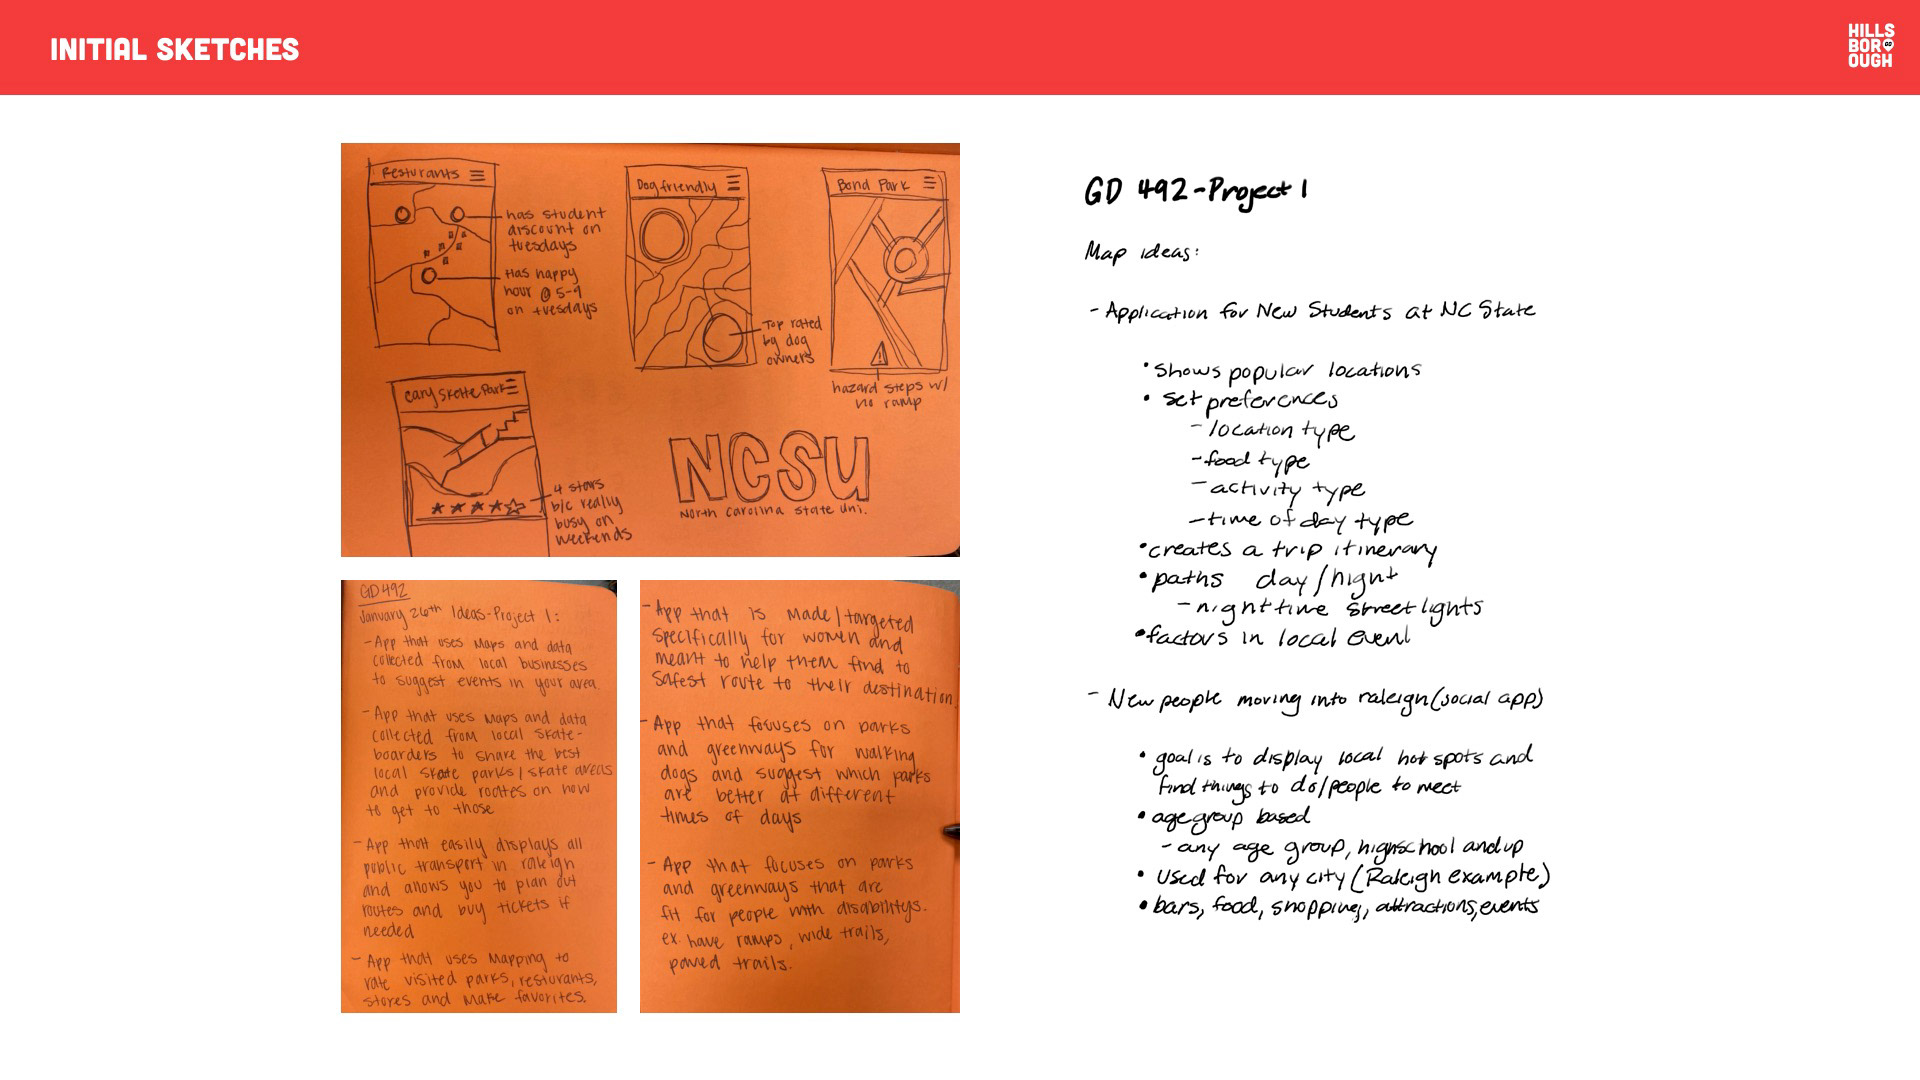 INITIAL SKETCHES
HILLS
BOR
OUGH
Resturants
has student
discount on
tuesdays
Has happy
hour @ 5-9
on tuesdays
Dog friendly
Top rated
by dog
owners
Bond Park
hazard steps w/
no ramp
Cary Skate Park
4 stars
b/c really
busy on
weekends
NCSU
North Carolina State Uni.
GD492
January 26th Ideas-Project 1:
- App that uses Maps and data
collected from local businesses
to suggest events in your area.
- App that uses Maps and data
collected from local skate-
boarders to share the best
local skate parks/skate areas
and provide routes on how
to get to those
- App that easily displays all
public transport in raleigh
and allows you to plan out
routes and buy tickets if
needed
- App that uses Mapping to
rate visited parks, resturants,
stores and make favorites.
- App that is Made/targeted
specifically for women and
meant to help them find to
safest route to their destination.
- App that focuses on parks
and greenways for walking
dogs and suggest which parks
are better at different
times of days
- App that focuses on parks
and greenways that are
fit for people with disabilitys.
ex. have ramps, wide trails,
paved trails.
GD 492-Project 1
Map ideas:
- Application for New Students at NC State
• Shows popular locations
• set preferences
- location type
- food type
- activity type
- time of day type
• creates a trip itinerary
• paths day/night
- nighttime streetlights
• factors in local event
- New people moving into raleigh (social app)
• goal is to display local hot spots and
find things to do/people to meet
• age group based
- any age group, highschool and up
• used for any city (Raleigh example)
• bars, food, shopping, attractions, events